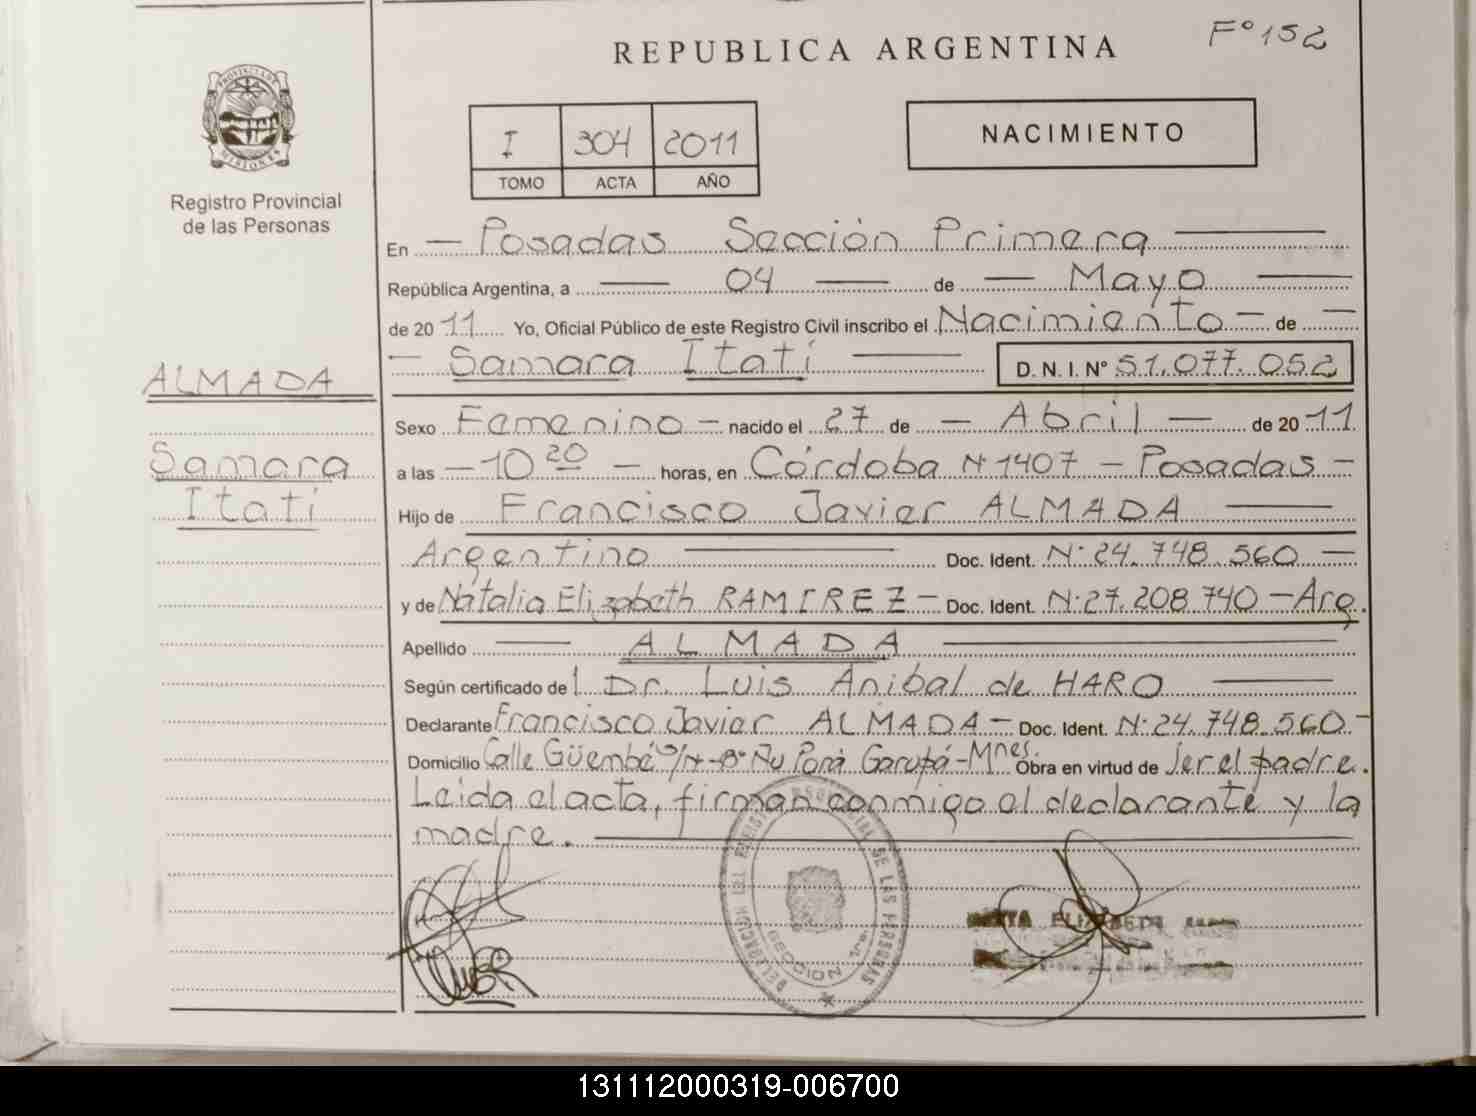 F° 152
REPUBLICA ARGENTINA
PROVINCIA DE MISIONES
Registro Provincial
de las Personas
I 304 2011
TOMO ACTA AÑO
NACIMIENTO
En — Posadas Sección Primera —
República Argentina, a — 04 — de — Mayo —
de 2011 Yo, Oficial Público de este Registro Civil inscribo el Nacimiento — de —
— Samara Itatí — D. N. I. N° 51.077.052
ALMADA
Samara
Itatí
Sexo Femenino — nacido el 27 de — Abril — de 2011
a las — 10 20 — horas, en Córdoba N° 1407 — Posadas —
Hijo de Francisco Javier ALMADA —
Argentino — Doc. Ident. N° 24.748.560 —
y de Natalia Elizabeth RAMIREZ — Doc. Ident. N° 27.208.740 — Arg.
Apellido — ALMADA —
Según certificado de l Dr. Luis Anibal de HARO —
Declarante Francisco Javier ALMADA — Doc. Ident. N° 24.748.560 —
Domicilio Calle Güembé S/N - B° Ñu Porá Garupá - Mnes. Obra en virtud de ser el padre.
Leida el acta, firman conmigo el declarante y la
madre. —
DELEGACION DEL REGISTRO PROVINCIAL DE LAS PERSONAS
SECCION 1ra.
ELIZABETH
131112000319-006700